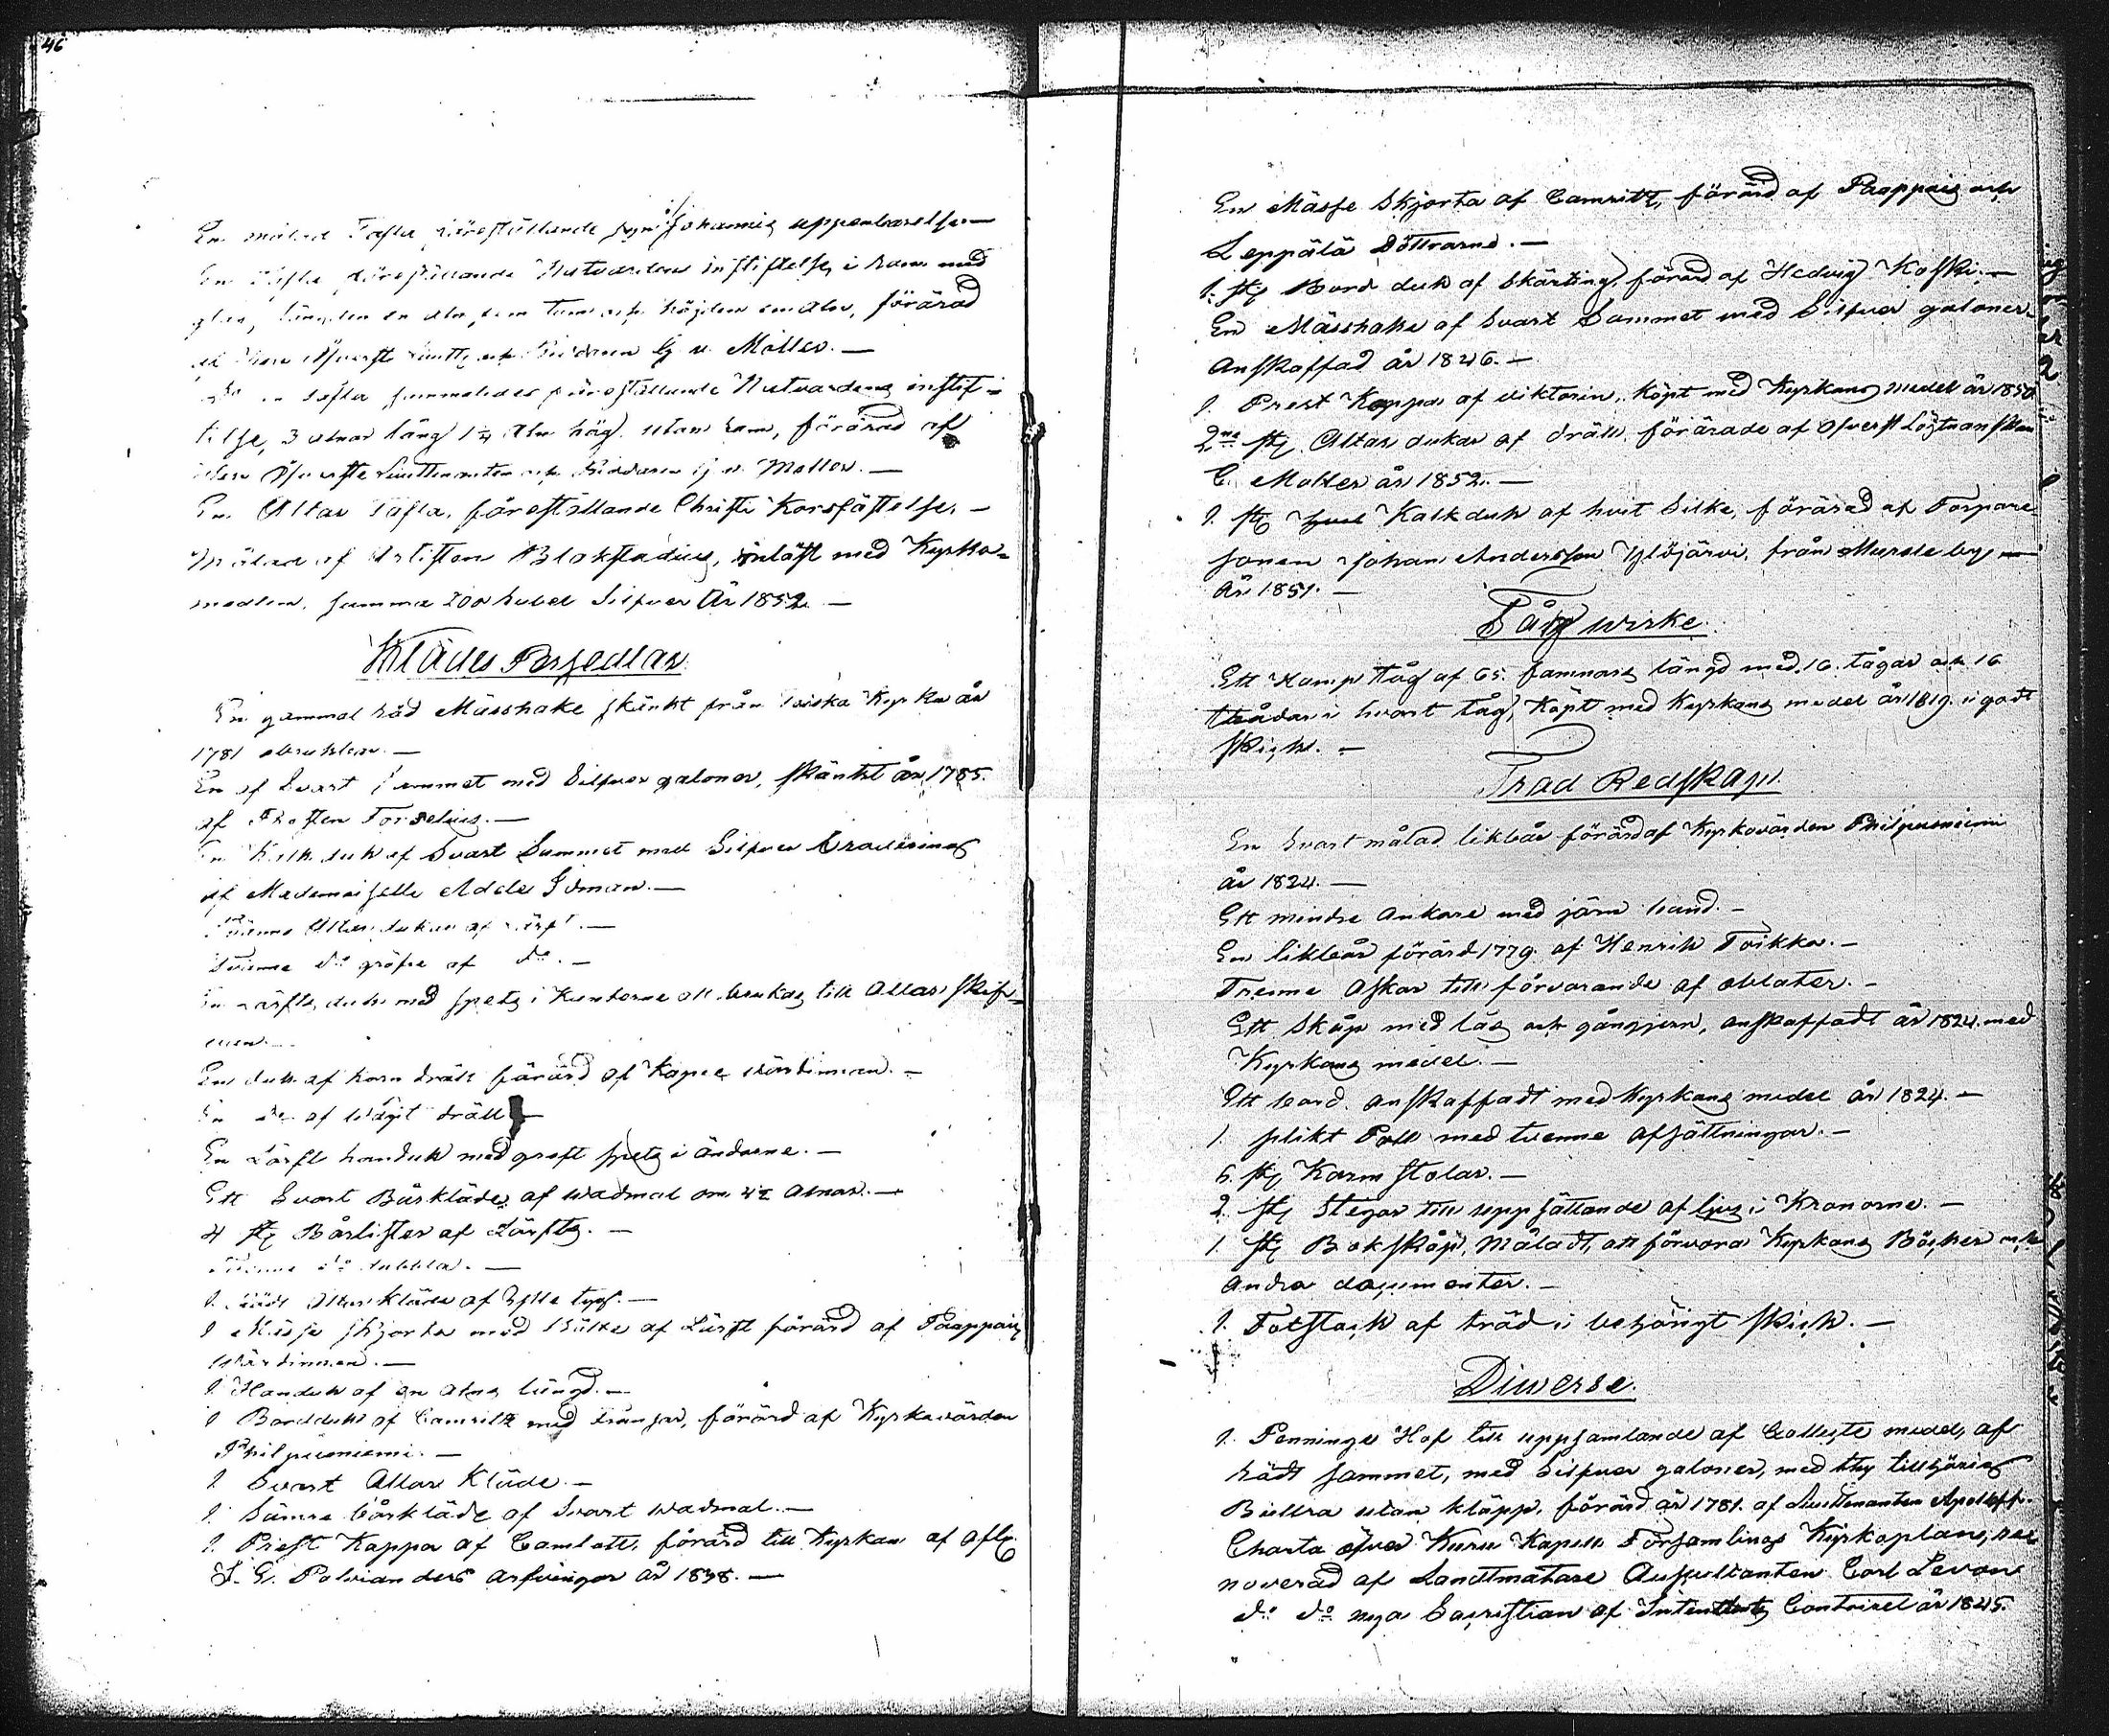 46
En målad Tafla föreställande syn Johannis uppenbarelse
En Tafla föreställande Nattvardens instiftelse i ram med
glas, längden en aln, fem tum och höjden en aln, förärad
af Herr Öfverste och Riddaren G v. Möller. —
Tafla sammaledes föreställande Nattvardens instif-
telse, 3 alnar lång 1¼ Aln hög. utan ram, förärad af
Herr Öfverste Lieuttenanten och Riddaren G v. Möller. —
En Altar Tafla, föreställande Christi Korsfästelse, —
Målad af Artisten Blokstadius, inlöst med Kyrko-
medlen, Summa 200 Rubel Silfver År 1852. —
Kläde Persedlar.
En gammal röd Mässhake skänkt från Kyrka år
1781 obrukbar. —
En af Svart Sammet med Silfver galoner, skänkt år 1785.
af Prosten Forselius. —
En Kalk duk af Svart Sammet med Silfver Brodering
af Mademoiselle Adele Idman. —
Tvänne Altar dukar af lärft. —
Tvänne do gröfre af do. —
En Lärfts duk med spets i Kanterne att brukas till Altar skif-
En duk af korn dräll förärd af Kapee Wärdinnan. —
En do af wägt dräll —
En Lärft handuk med groft spets i ändarne. —
Ett Svart Bårkläde af Wadmal om 4½ Alnar. —
4 st Bårlister af Lärfts. —
Tvänne do dubbla. —
1. Rödt Altar kläde af Ylle tyg. —
1 Mässe skjorta med Bälte af Lärft förärd af Paappais
Wärdinnan. —
1 Handuk af en Alns längd. —
1 Bordduk af Camritt med fransar, förärd af Kyrkovärden
Philpusniemi. —
1 Svart Altar Kläde. —
1. Sämre Bårkläde af Svart Wadmal. —
1. Prest Kappa af Camlott, förärd till Kyrkan af Afle
J. G. Polvianders arfvingar år 1838. —
En Mässe Skjorta af Camritt, förärd af Paappais och
Leppälä Döttrarne. —
1. st Bord duk af Skärting, förärd af Hedvig Koski. —
En Mässhake af Svart Sammet med Silfver galoner.
Anskaffad år 1846. —
1. Prest Kappa af viktorin, köpt med Kyrkans medel år 1850
2ne st Altar dukar af dräll, förärade af Öfverst Löjtnanskan
C. Möller år 1852. —
1. st Kalkduk af hvit Silke, förärad af Torpare
sonen Johan Andersson Ylöjärvi, från Mursle by —
år 1851. —
Tåg wirke
Ett Hamp tåg af 65. famnars längd med 16. tågar och 16
trådar i hvart tåg, Köpt med Kyrkans medel år 1819. i godt
skick. —
Träd Redskap.
En Svart målad likbår förärd af Kyrkovärden Philpusniemi
år 1824. —
Ett mindre ankare med järn band. —
En likbår förärd 1779. af Henrik Toikka. —
Trenne Askar till förvarande af oblater. —
Ett Skåp med lås och gångjern, anskaffadt år 1824. med
Kyrkans medel. —
Ett bord. anskaffadt med Kyrkans medel år 1824. —
1. plikt Pall med tvenne afsättningar. —
6. st Karm stolar. —
2. st Stegar till uppsättande af ljus i Kronorne. —
1. st Bokskåp, Måladt, att förvara Kyrkans Böcker och
andra documenter. —
1. Fotstack af träd i behörigt skick. —
Diverse.
1. Penninge Hof till uppsamlande af Collecte medel, af
rödt sammet, med Silfver galoner, med thy tillhörig
Bjellra utan kläpp, förärd år 1781. af Lieuttenanten Apoloff.
Charta öfver Kuru Kapell Församlings Kyrkoplan, re-
noverad af Landtmätare Auscultanten Carl Levon
do do nya Sacristian af Intendents Contoiret år 1845.